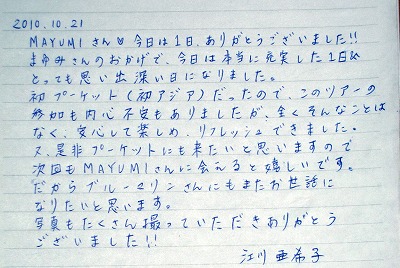 2010.10.21
MAYUMIさん♡今日は1日、ありがとうございました!!
まゆみさんのおかげで、今日は本当に充実した1日&
とっても思い出深い日になりました。
初プーケット(初アジア)だったので、このツアーの
参加も内心不安もありましたが、全くそんなことは
なく、安心して楽しめ、リフレッシュできました。
又、是非プーケットにも来たいと思いますので
次回もMAYUMIさんに会えると嬉しいです。
だからブルーマリンさんにもまたお世話に
なりたいと思います。
写真もたくさん撮っていただきありがとう
ございました!!
江川亜希子